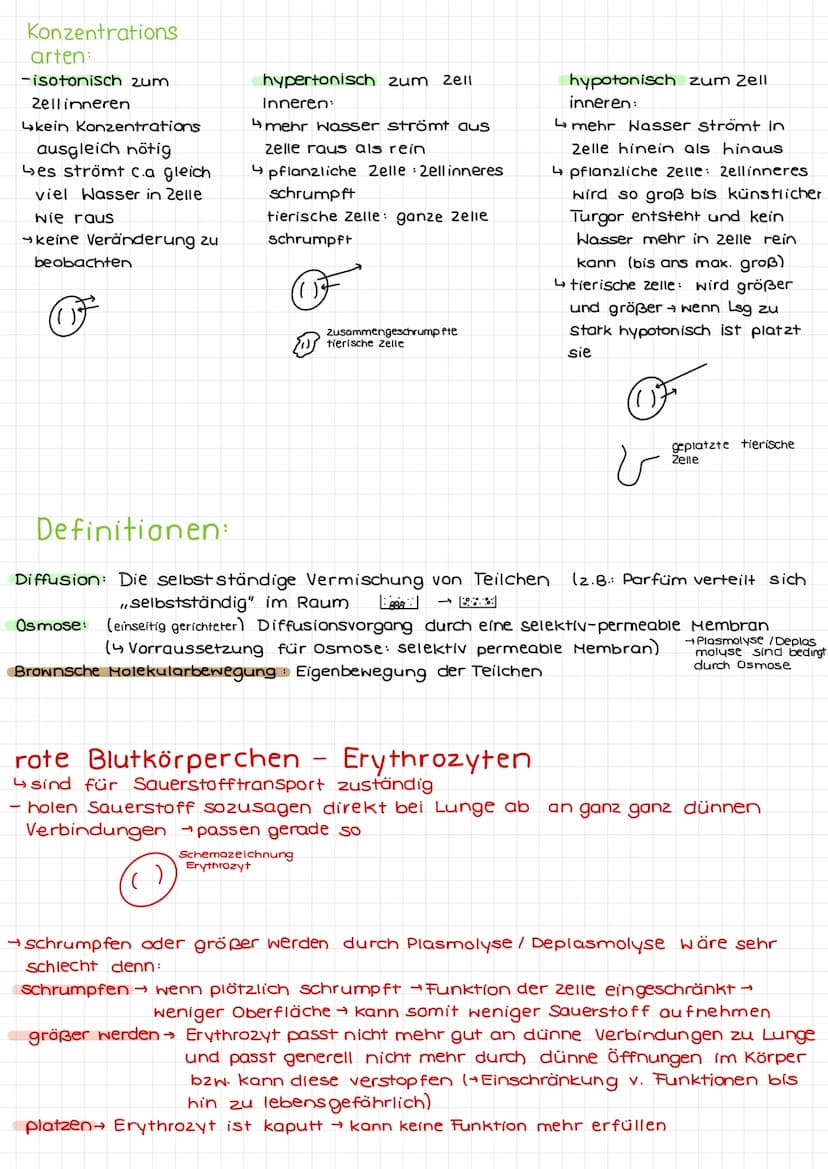 Konzentrations
arten:
-isotonisch zum
Zellinneren
↳kein Konzentrations
ausgleich nötig
↳es strömt c.a gleich
viel Wasser in Zelle
wie raus
→keine Veränderung zu
beobachten
hypertonisch zum Zell
inneren:
↳mehr Wasser strömt aus
Zelle raus als rein
↳pflanzliche Zelle: Zellinneres
schrumpft
tierische Zelle: ganze Zelle
schrumpft
zusammengeschrumpfte
tierische Zelle
hypotonisch zum Zell
inneren:
↳mehr Wasser strömt in
Zelle hinein als hinaus
↳pflanzliche Zelle: Zellinneres
wird so groß bis künstlicher
Turgor entsteht und kein
Wasser mehr in Zelle rein
kann (bis ans max. groß)
↳tierische Zelle: wird größer
und größer → wenn Lsg zu
stark hypotonisch ist platzt
sie
geplatzte tierische
Zelle
Definitionen:
Diffusion: Die selbstständige Vermischung von Teilchen (z.B.: Parfüm verteilt sich
„selbstständig" im Raum →
Osmose: (einseitig gerichteter) Diffusionsvorgang durch eine selektiv-permeable Membran
(↳ Vorraussetzung für Osmose: selektiv permeable Membran)
→Plasmolyse/Deplas
molyse sind bedingt
durch Osmose
Brownsche Molekularbewegung: Eigenbewegung der Teilchen
rote Blutkörperchen - Erythrozyten
↳sind für Sauerstofftransport zuständig
- holen Sauerstoff sozusagen direkt bei Lunge ab an ganz ganz dünnen
Verbindungen → passen gerade so
Schemazeichnung
Erythrozyt
→schrumpfen oder größer werden durch Plasmolyse/Deplasmolyse wäre sehr
schlecht denn:
schrumpfen → wenn plötzlich schrumpft → Funktion der Zelle eingeschränkt →
weniger Oberfläche → kann somit weniger Sauerstoff aufnehmen
größer werden → Erythrozyt passt nicht mehr gut an dünne Verbindungen zu Lunge
und passt generell nicht mehr durch dünne Öffnungen im Körper
bzw. kann diese verstopfen (→Einschränkung v. Funktionen bis
hin zu lebensgefährlich)
platzen → Erythrozyt ist kaputt → kann keine Funktion mehr erfüllen